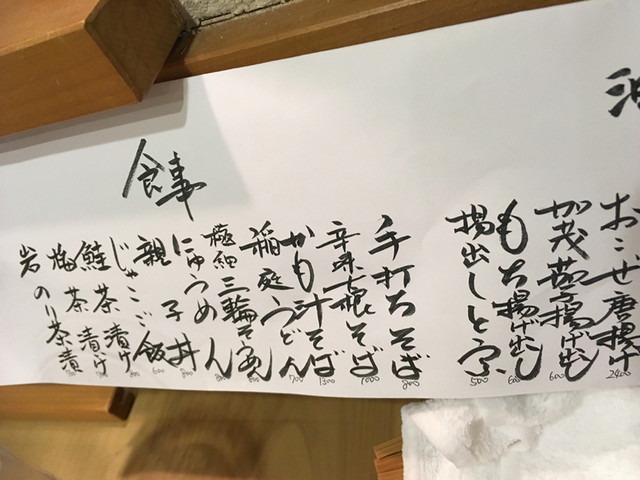 おこぜ唐揚げ 2400
加茂茄子揚げ出し 600
もち揚げ出し 600
揚出しとふ 500
食事
手打ちそば 800
辛味大根そば 1000
かも汁そば 1300
稲庭うどん 700
極細三輪そうめん
にゅうめん 800
親子丼 800
じゃこご飯
鮭茶漬け
梅茶漬け
岩のり茶漬